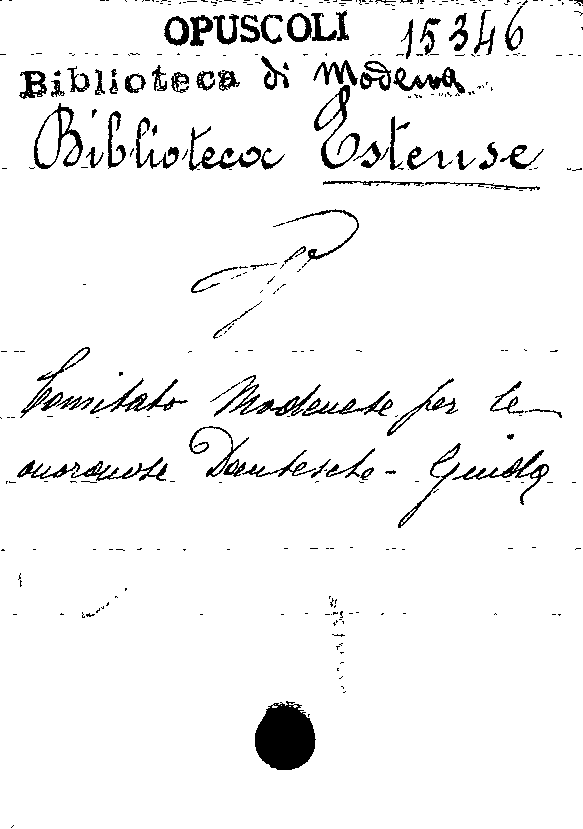 OPUSCOLI 15346
Biblioteca di Modena
Biblioteca Estense
Comitato Modenese per le
onoranze Dantesche - Guida